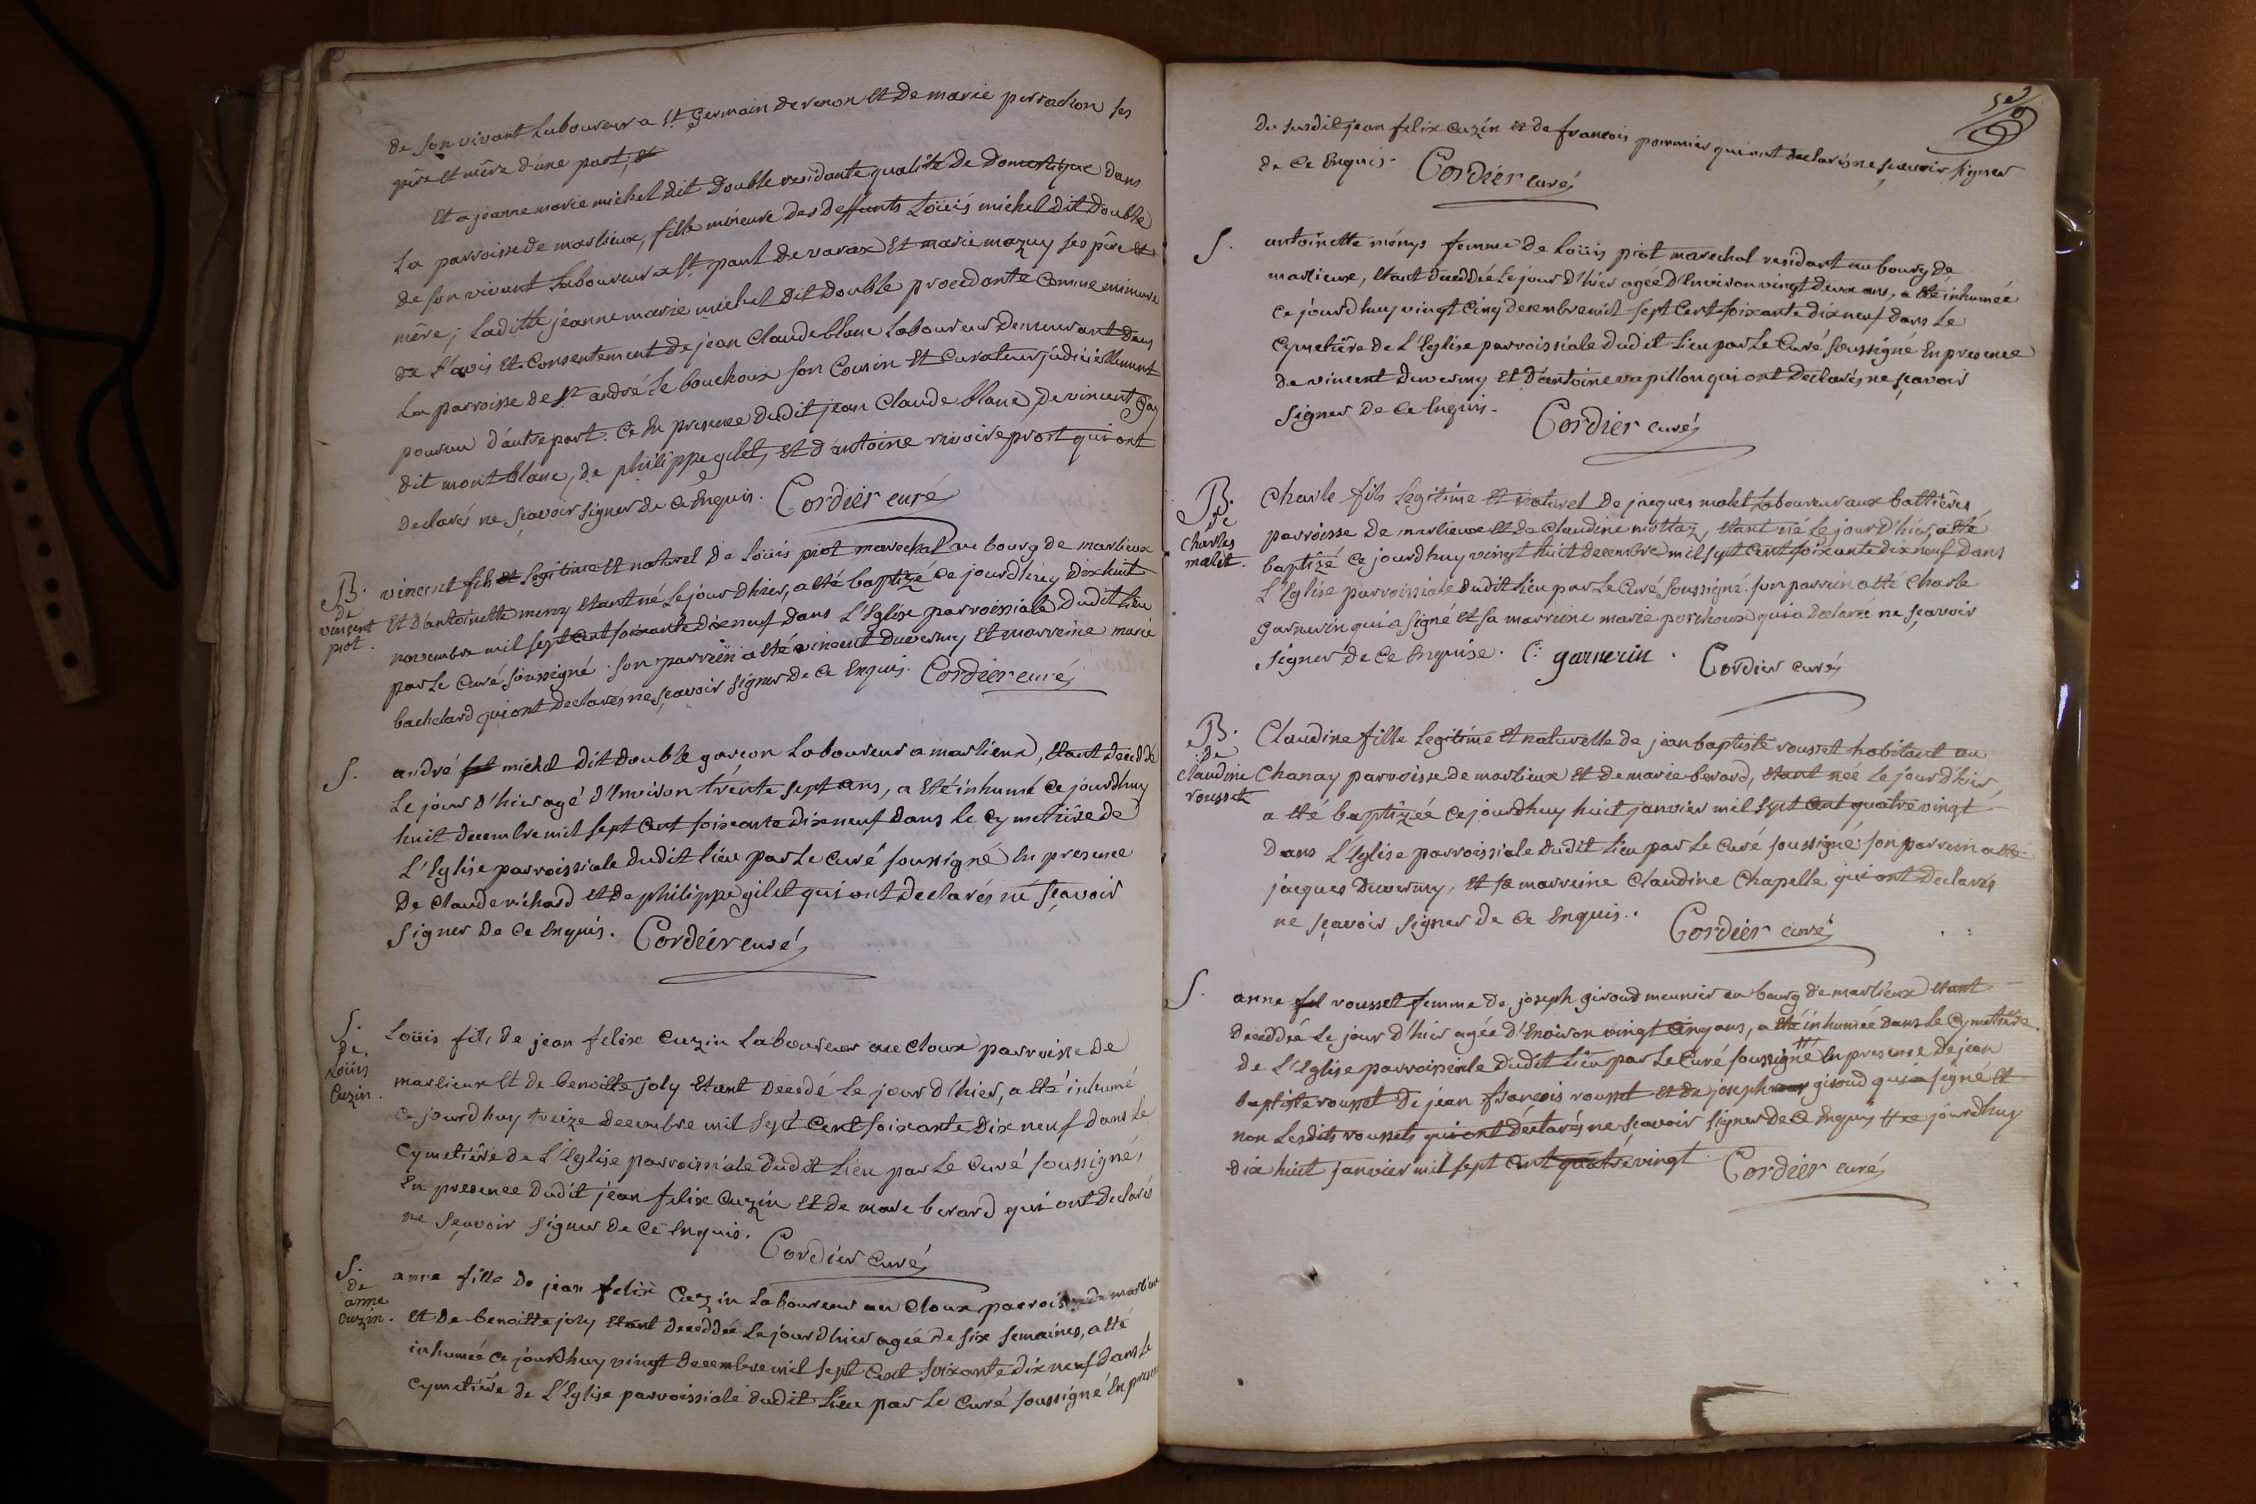 de son vivant Laboureur a St. Germain de renon et de marie perrachon ses
père et mère d'une part, et
et a jeanne marie michel dit Double residante qualité de Domestique dans
La parroisse de marlieux, fille mineure des deffunts Loüis michel dit Double
de son vivant Laboureur a St. paul de varax et marie mazuy ses père et
mère; Laditte jeanne marie michel dit Double procedante comme mineure
de L'avis et Consentement de jean Claude blanc Laboureur demeurant dans
La parroisse de St andré Le bouchoux son Cousin et Curateur judiciellement
pourvu d'autre part. Ce en presence dudit jean Claude blanc, de vincent Gay
dit mont blanc, de philippe gilet, et d'antoine rivoire prost qui ont
declarés ne sçavoir signer de ce Enquis. Cordier curé
B.
de
vincent
piot.
vincent fils et legitime et naturel de Loüis piot marechal au bourg de marlieux
et d'antoinette meny etant né Le jour d'hier, a été baptizé ce jourd'huy dixhuit
novembre mil sept cent soixante dix neuf dans L'Eglise parroissiale dudit lieu
par Le Curé soussigné. son parrein a été vincent duvermy et marreine marie
bachelard qui ont declarés ne sçavoir signer de ce Enquis. Cordier curé
S.
andré fil michel dit Double garçon Laboureur a marlieux, etant decedé
Le jour d'hier agé d'Environ trente sept ans, a été inhumé ce jourd'huy
huit decembre mil sept cent soixante dix neuf dans le Cymetière de
L'Eglise parroissiale dudit lieu par Le Curé soussigné En presence
de Claude richard et de philippe gilet qui ont declarés ne sçavoir
signer de ce Enquis. Cordier curé
S.
de.
Loüis
Cuzin.
Loüis fils de jean felix Cuzin Laboureur au Cloux parroisse de
marlieux et de benoitte joly etant decedé Le jour d'hier, a été inhumé
ce jourd'huy treize decembre mil sept cent soixante dix neuf dans le
Cymetière de L'Eglise parroissiale dudit Lieu par Le Curé soussigné,
En presence dudit jean felix Cuzin et de marc berard qui ont declarés
ne sçavoir signer de ce Enquis. Cordier curé
S.
de
anne
Cuzin.
anne fille de jean felix Cuzin Laboureur au Cloux parroisse de marlieux
et de benoitte joly etant deceddée Le jour d'hier agée de six semaines, a été
inhumée ce jourd'huy vingt decembre mil sept cent soixante dix neuf dans Le
Cymetière de L'Eglise parroissiale dudit Lieu par Le Curé soussigné En presence
du susdit jean felix Cuzin et de francois pommier qui ont declarés ne sçavoir signer
de ce Enquis. Cordier curé
S.
antoinette ménys femme de Loüis piot marechal residant au bourg de
marlieux, etant deceddée Le jour d'hier agée d'Environ vingt deux ans, a été inhumée
ce jourd'huy vingt Cinq decembre mil sept cent soixante dix neuf dans Le
Cymetière de L'Eglise parroissiale dudit Lieu par Le Curé soussigné En presence
de vincent duvermy et d'antoine vapillon qui ont declarés ne sçavoir
signer de ce Enquis. Cordier curé
B.
de
Charles
malet.
Charle fils Legitime et naturel de jacques malet Laboureur aux battières
parroisse de marlieux et de Claudine mottaz, etant né Le jour d'hier, a été
baptizé ce jourd'huy vingt huit decembre mil sept cent soixante dix neuf dans
L'Eglise parroissiale dudit Lieu par Le Curé soussigné. son parrein a été Charle
garnerin qui a signé et sa marreine marie porchoux qui a declaré ne sçavoir
signer de ce Enquise. C. garnerin. Cordier curé
B.
de
Claudine
rousset
Claudine fille Legitime et naturelle de jean baptiste rousset habitant au
Chanay parroisse de marlieux et de marie berard, etant née Le jour d'hier
a été baptizée ce jourd'huy huit janvier mil sept cent quatre vingt
dans L'Eglise parroissiale dudit Lieu par Le Curé soussigné son parrein a été
jacques Duvermy, et sa marreine Claudine Chapelle qui ont declarés
ne sçavoir signer de ce Enquis. Cordier curé
S.
anne fil rousset femme de joseph giroud meunier au bourg de marlieux etant
deceddée Le jour d'hier agée d'Environ vingt Cinq ans, a été inhumée dans Le Cymetière
de L'Eglise parroissiale dudit Lieu par Le Curé soussigné # En presence de jean
baptiste rousset de jean francois rousset et de joseph giroud qui a signé et
non Lesdits roussets qui ont declarés ne sçavoir signer de ce Enquis # ce jourd'huy
dix huit janvier mil sept cent quatre vingt. Cordier curé